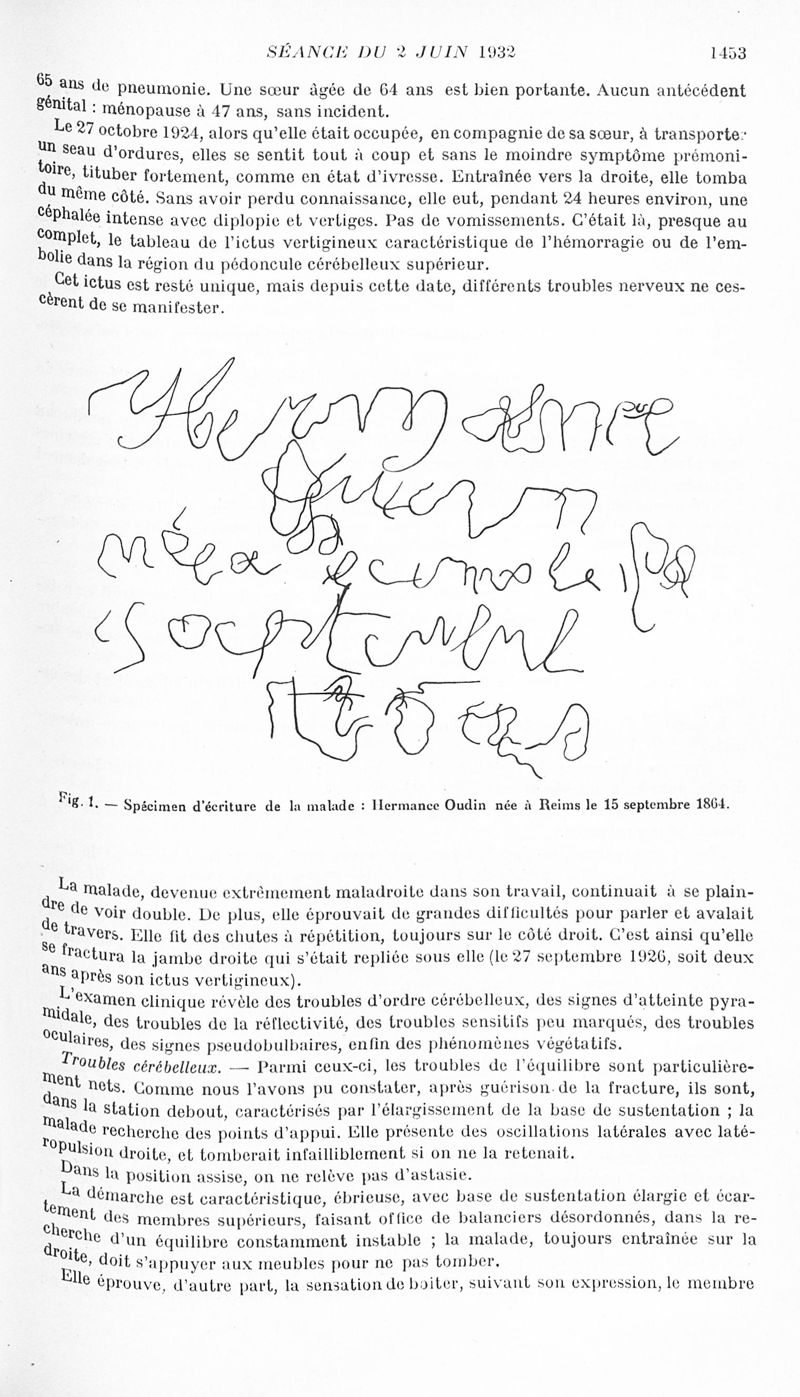 SÉANCE DU 2 JUIN 1932 1453
65 ans de pneumonie. Une sœur âgée de 64 ans est bien portante. Aucun antécédent
génital : ménopause à 47 ans, sans incident.
Le 27 octobre 1924, alors qu'elle était occupée, en compagnie de sa sœur, à transporter
un seau d'ordures, elles se sentit tout à coup et sans le moindre symptôme prémoni-
toire, tituber fortement, comme en état d'ivresse. Entraînée vers la droite, elle tomba
du même côté. Sans avoir perdu connaissance, elle eut, pendant 24 heures environ, une
céphalée intense avec diplopie et vertiges. Pas de vomissements. C'était là, presque au
complet, le tableau de l'ictus vertigineux caractéristique de l'hémorragie ou de l'em-
bolie dans la région du pédoncule cérébelleux supérieur.
Cet ictus est resté unique, mais depuis cette date, différents troubles nerveux ne ces-
cèrent de se manifester.
Hermance
Oudin
née a Reims le
15 septembre
1864
Fig. 1. — Spécimen d'écriture de la malade : Hermance Oudin née à Reims le 15 septembre 1864.
La malade, devenue extrêmement maladroite dans son travail, continuait à se plain-
dre de voir double. De plus, elle éprouvait de grandes difficultés pour parler et avalait
de travers. Elle fit des chutes à répétition, toujours sur le côté droit. C'est ainsi qu'elle
se fractura la jambe droite qui s'était repliée sous elle (le 27 septembre 1926, soit deux
ans après son ictus vertigineux).
L'examen clinique révèle des troubles d'ordre cérébelleux, des signes d'atteinte pyra-
midale, des troubles de la réflectivité, des troubles sensitifs peu marqués, des troubles
oculaires, des signes pseudobulbaires, enfin des phénomènes végétatifs.
Troubles cérébelleux. — Parmi ceux-ci, les troubles de l'équilibre sont particulière-
ment nets. Comme nous l'avons pu constater, après guérison de la fracture, ils sont,
dans la station debout, caractérisés par l'élargissement de la base de sustentation ; la
malade recherche des points d'appui. Elle présente des oscillations latérales avec laté-
ropulsion droite, et tomberait infailliblement si on ne la retenait.
Dans la position assise, on ne relève pas d'astasie.
La démarche est caractéristique, ébrieuse, avec base de sustentation élargie et écar-
tement des membres supérieurs, faisant office de balanciers désordonnés, dans la re-
cherche d'un équilibre constamment instable ; la malade, toujours entraînée sur la
droite, doit s'appuyer aux meubles pour ne pas tomber.
Elle éprouve, d'autre part, la sensation de boiter, suivant son expression, le membre